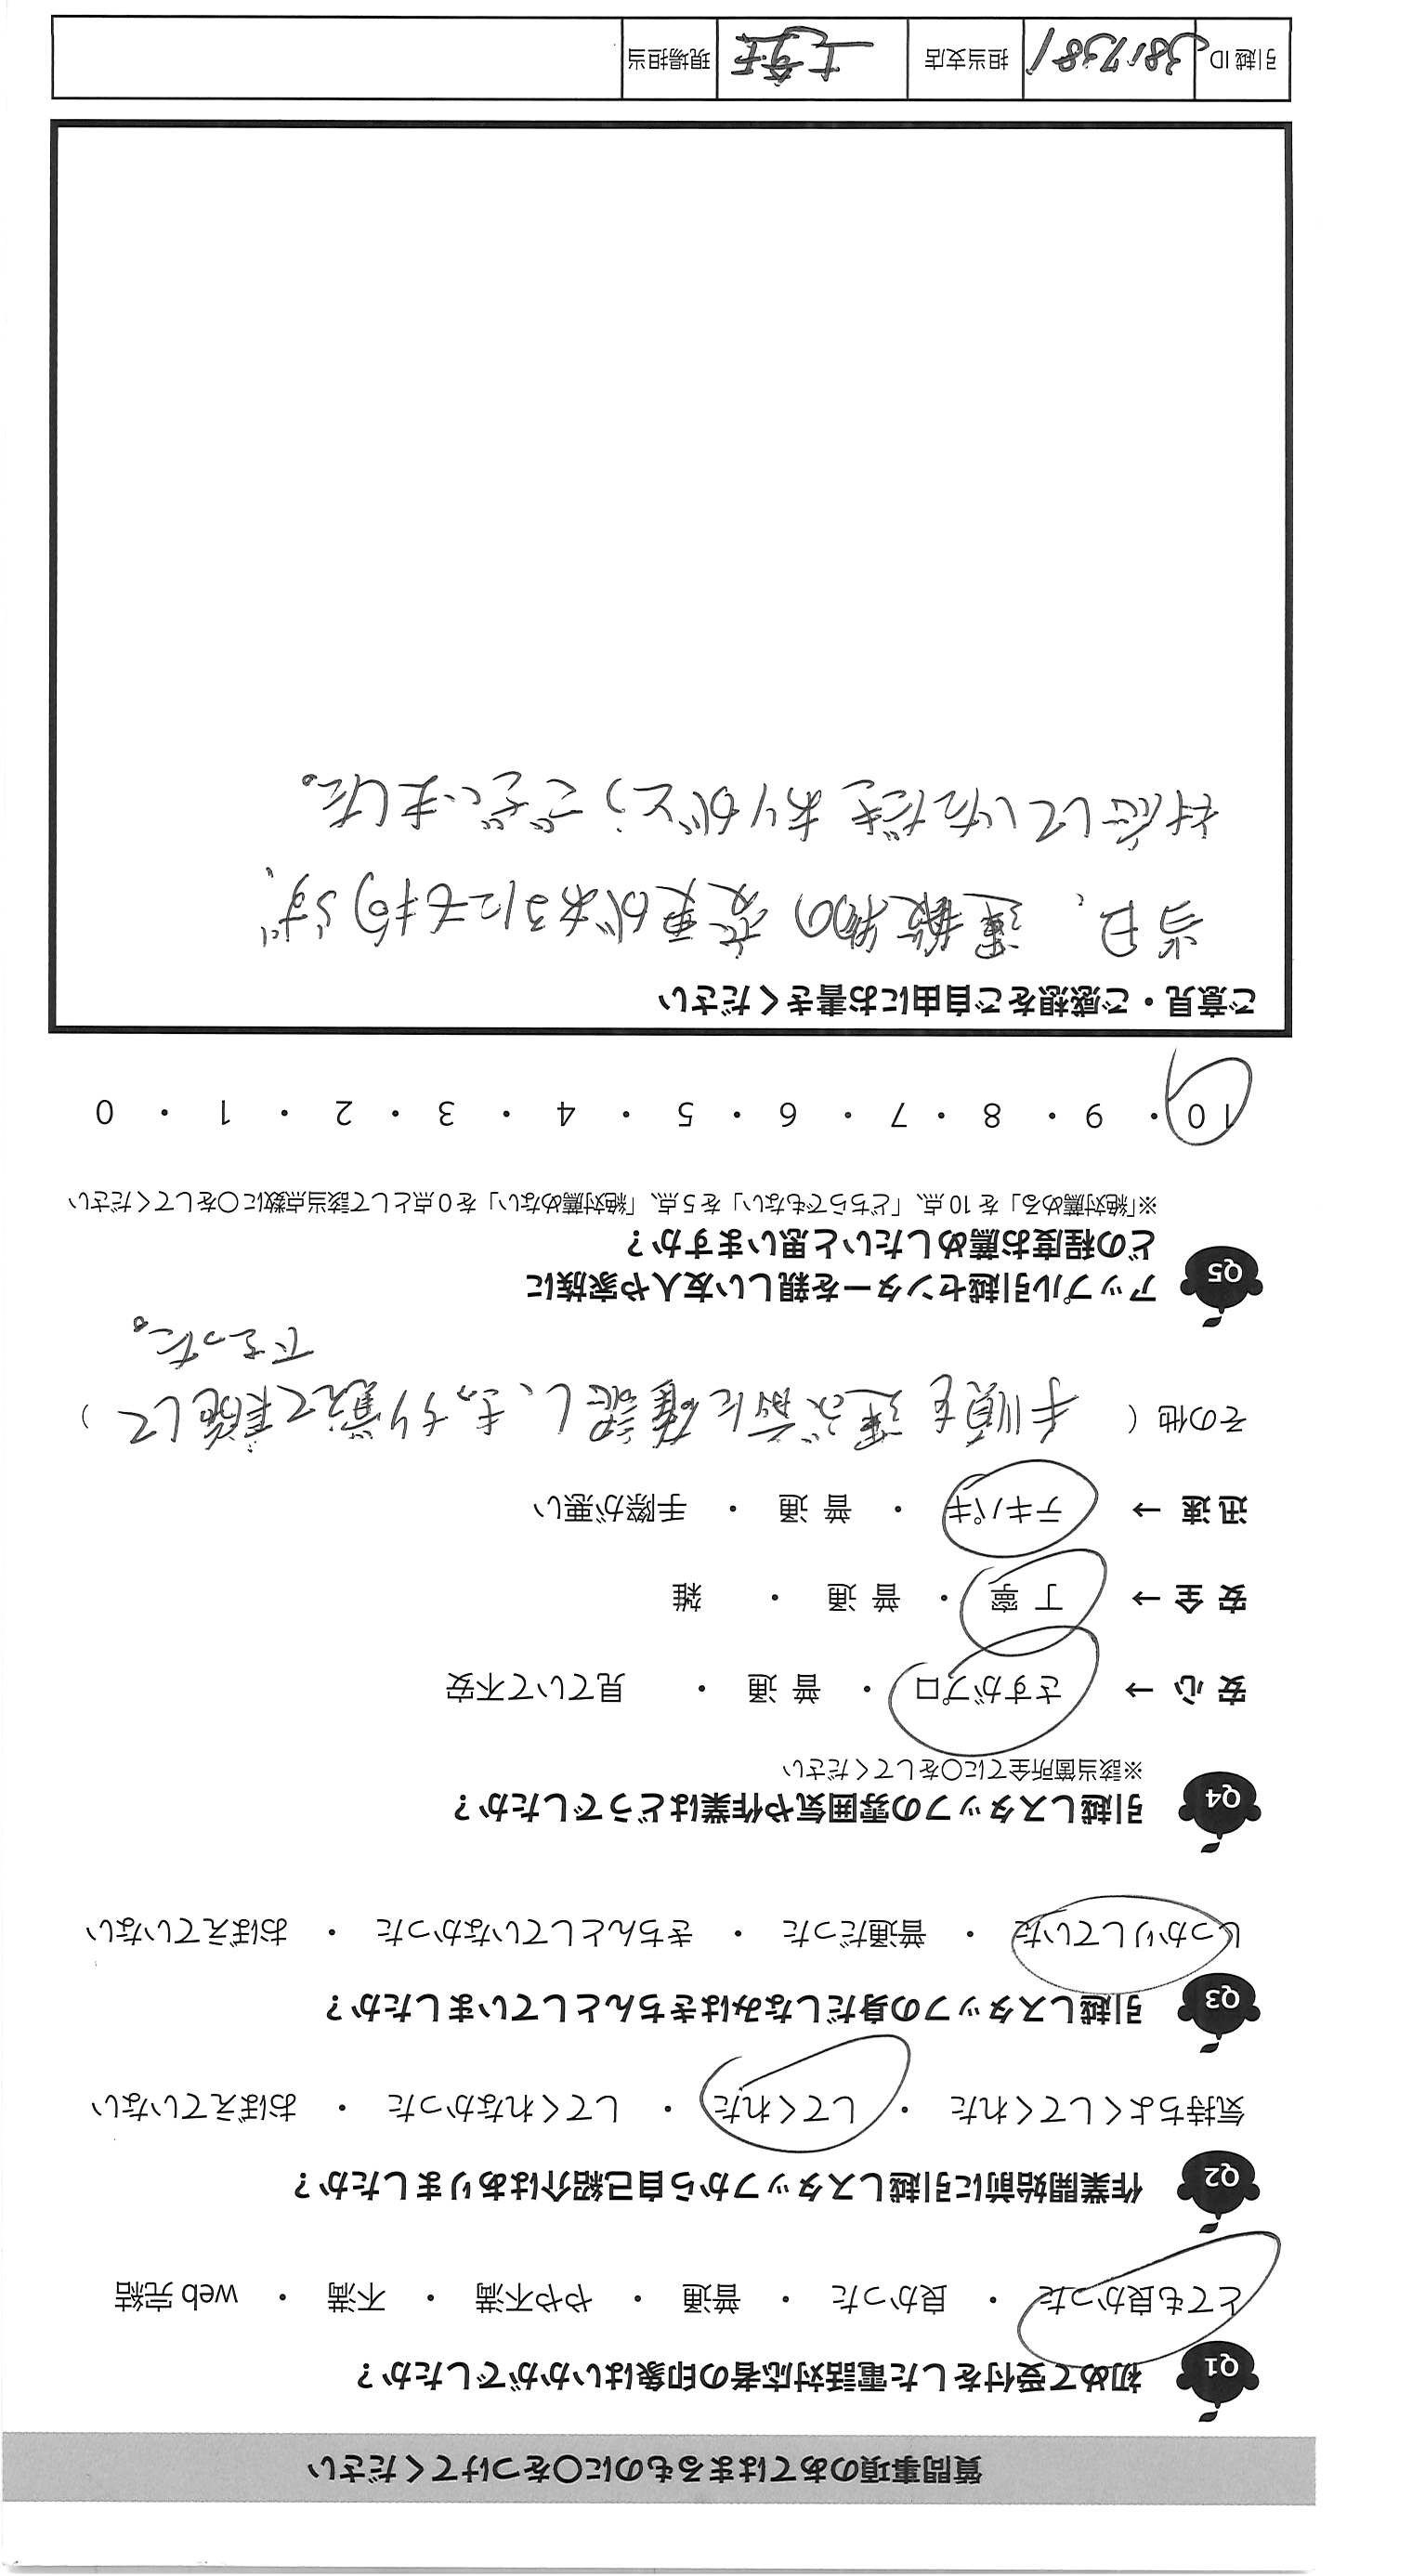 質問事項のあてはまるものに〇をつけてください
Q1 初めて受付をした電話対応者の印象はいかがでしたか？
とても良かった ・ 良かった ・ 普通 ・ やや不満 ・ 不満 ・ web 完結
Q2 作業開始前に引越しスタッフから自己紹介はありましたか？
気持ちよくしてくれた ・ してくれた ・ してくれなかった ・ おぼえていない
Q3 引越しスタッフの身だしなみはきちんとしていましたか？
しっかりしていた ・ 普通だった ・ きちんとしていなかった ・ おぼえていない
Q4 引越しスタッフの雰囲気や作業はどうでしたか？
※該当箇所全てに〇をしてください
安心 → さすがプロ ・ 普通 ・ 見ていて不安
安全 → 丁寧 ・ 普通 ・ 雑
迅速 → テキパキ ・ 普通 ・ 手際が悪い
その他（ 手順を運ぶ前に確認し、きっちり覚えて実施して ）
下さった。
Q5 アップル引越センターを親しい友人や家族に
どの程度お薦めしたいと思いますか？
※「絶対薦める」を 10 点、「どちらでもない」を 5 点、「絶対薦めない」を 0 点として該当点数に〇をしてください
10 ・ 9 ・ 8 ・ 7 ・ 6 ・ 5 ・ 4 ・ 3 ・ 2 ・ 1 ・ 0
ご意見・ご感想をご自由にお書きください
当日、運搬物の変更があるにも拘らず、
対応していただきありがとうございました。
引越 ID 3817381 担当支店 現場担当